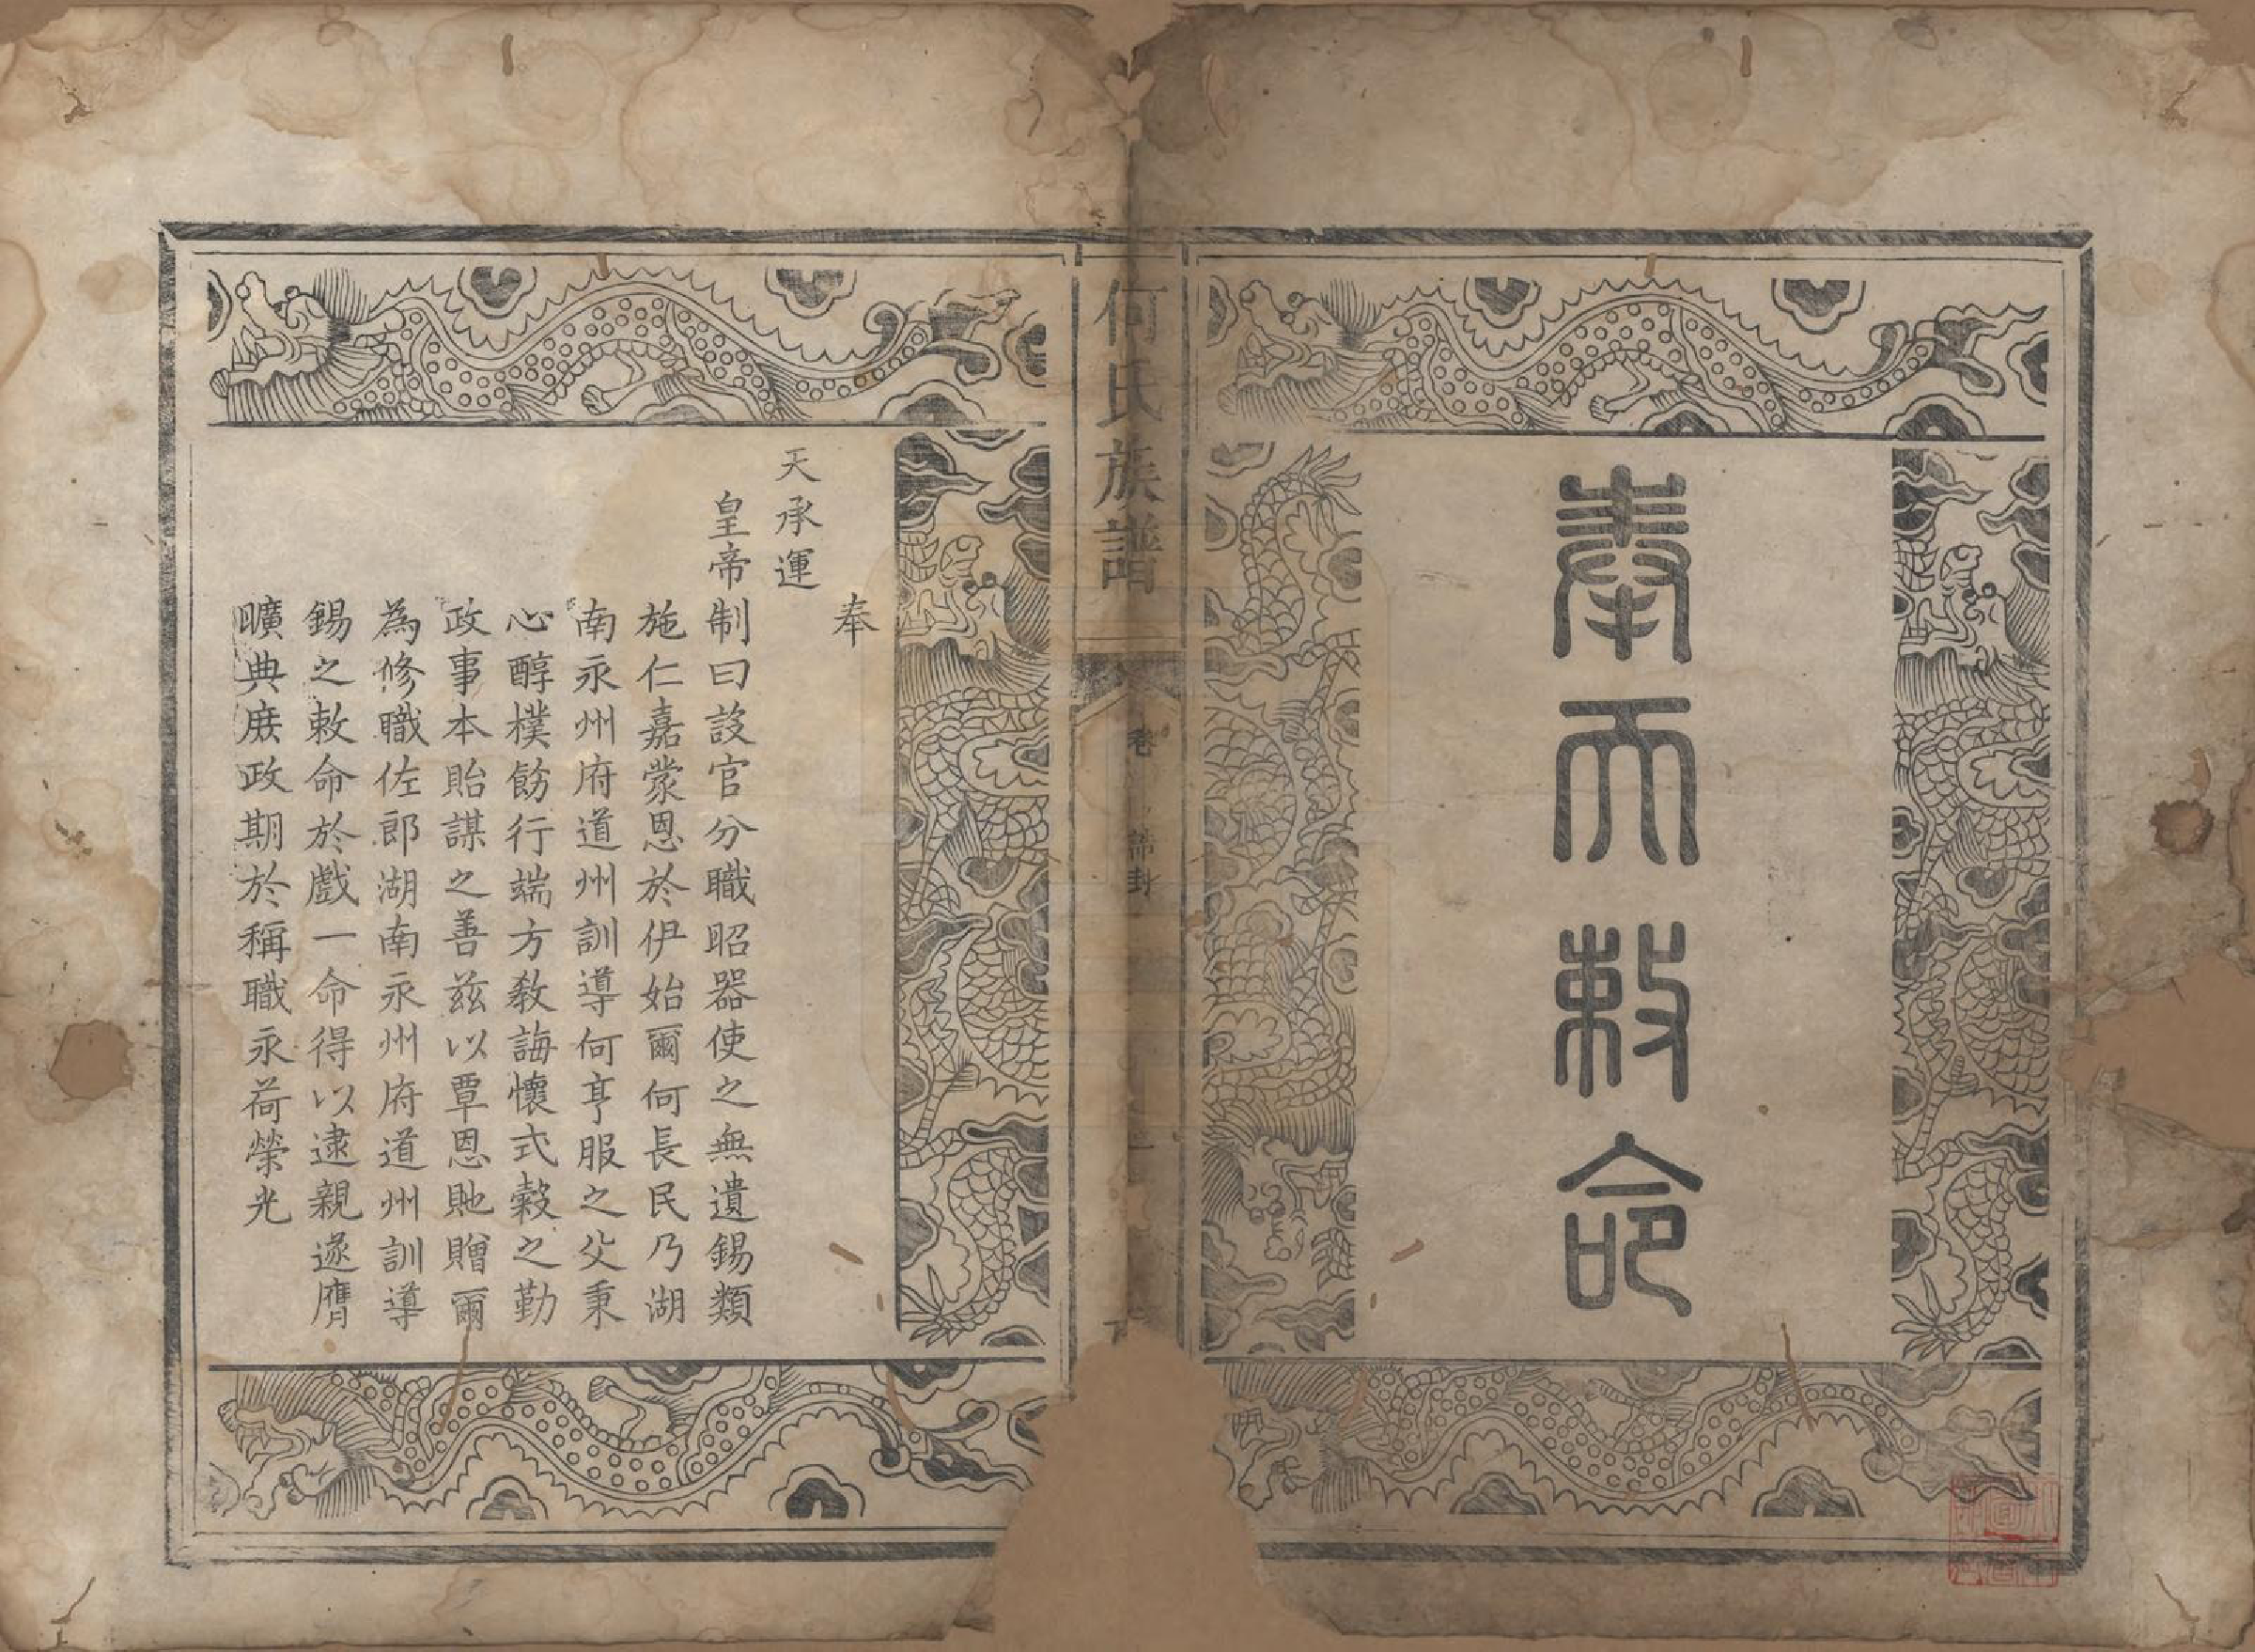 奉天敕命
何氏族譜
卷
誥封
奉
天承運
皇帝制曰設官分職昭器使之無遺錫類
施仁嘉蒙恩於伊始爾何長民乃湖
南永州府道州訓導何亨服之父秉
心醇樸飭行端方教誨懷式穀之勤
政事本貽謀之善茲以覃恩貤贈爾
為修職佐郎湖南永州府道州訓導
錫之敕命於戲一命得以逮親遂膺
曠典庶政期於稱職永荷榮光